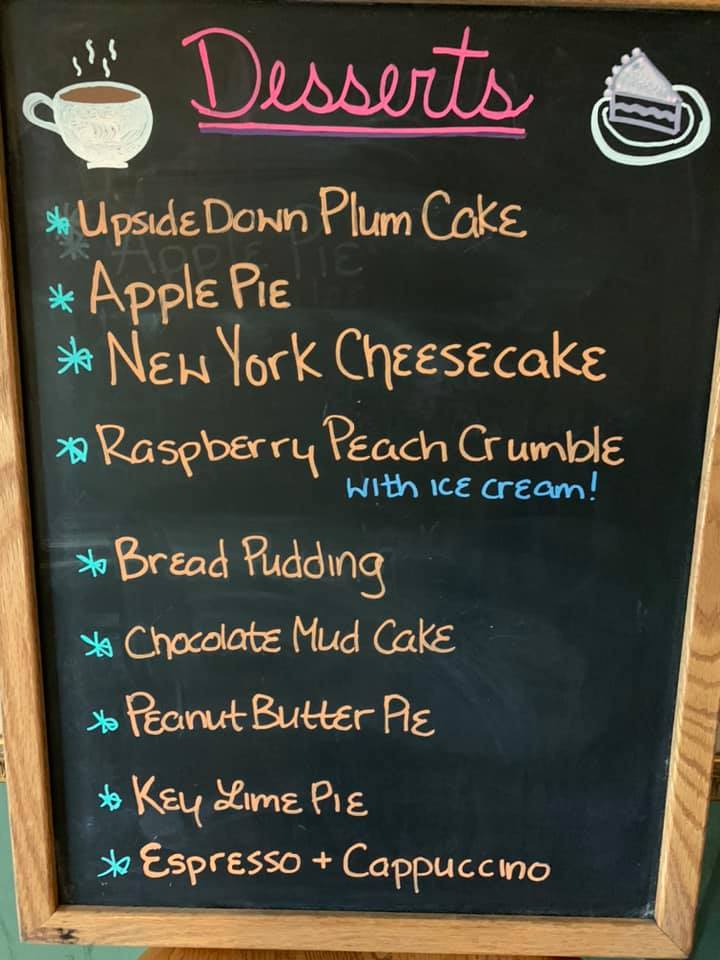 Desserts
* Upside Down Plum Cake
* Apple Pie
* New York Cheesecake
* Raspberry Peach Crumble
with ice cream!
* Bread Pudding
* Chocolate Mud Cake
* Peanut Butter Pie
* Key Lime Pie
* Espresso + Cappuccino